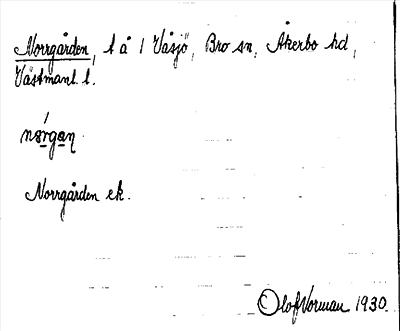 Norrgården, t å 1 Våsjö, Bro sn, Åkerbo hd,
Västmanl. l.
nórgan
Norrgården ek.
Olof Vorman 1930.